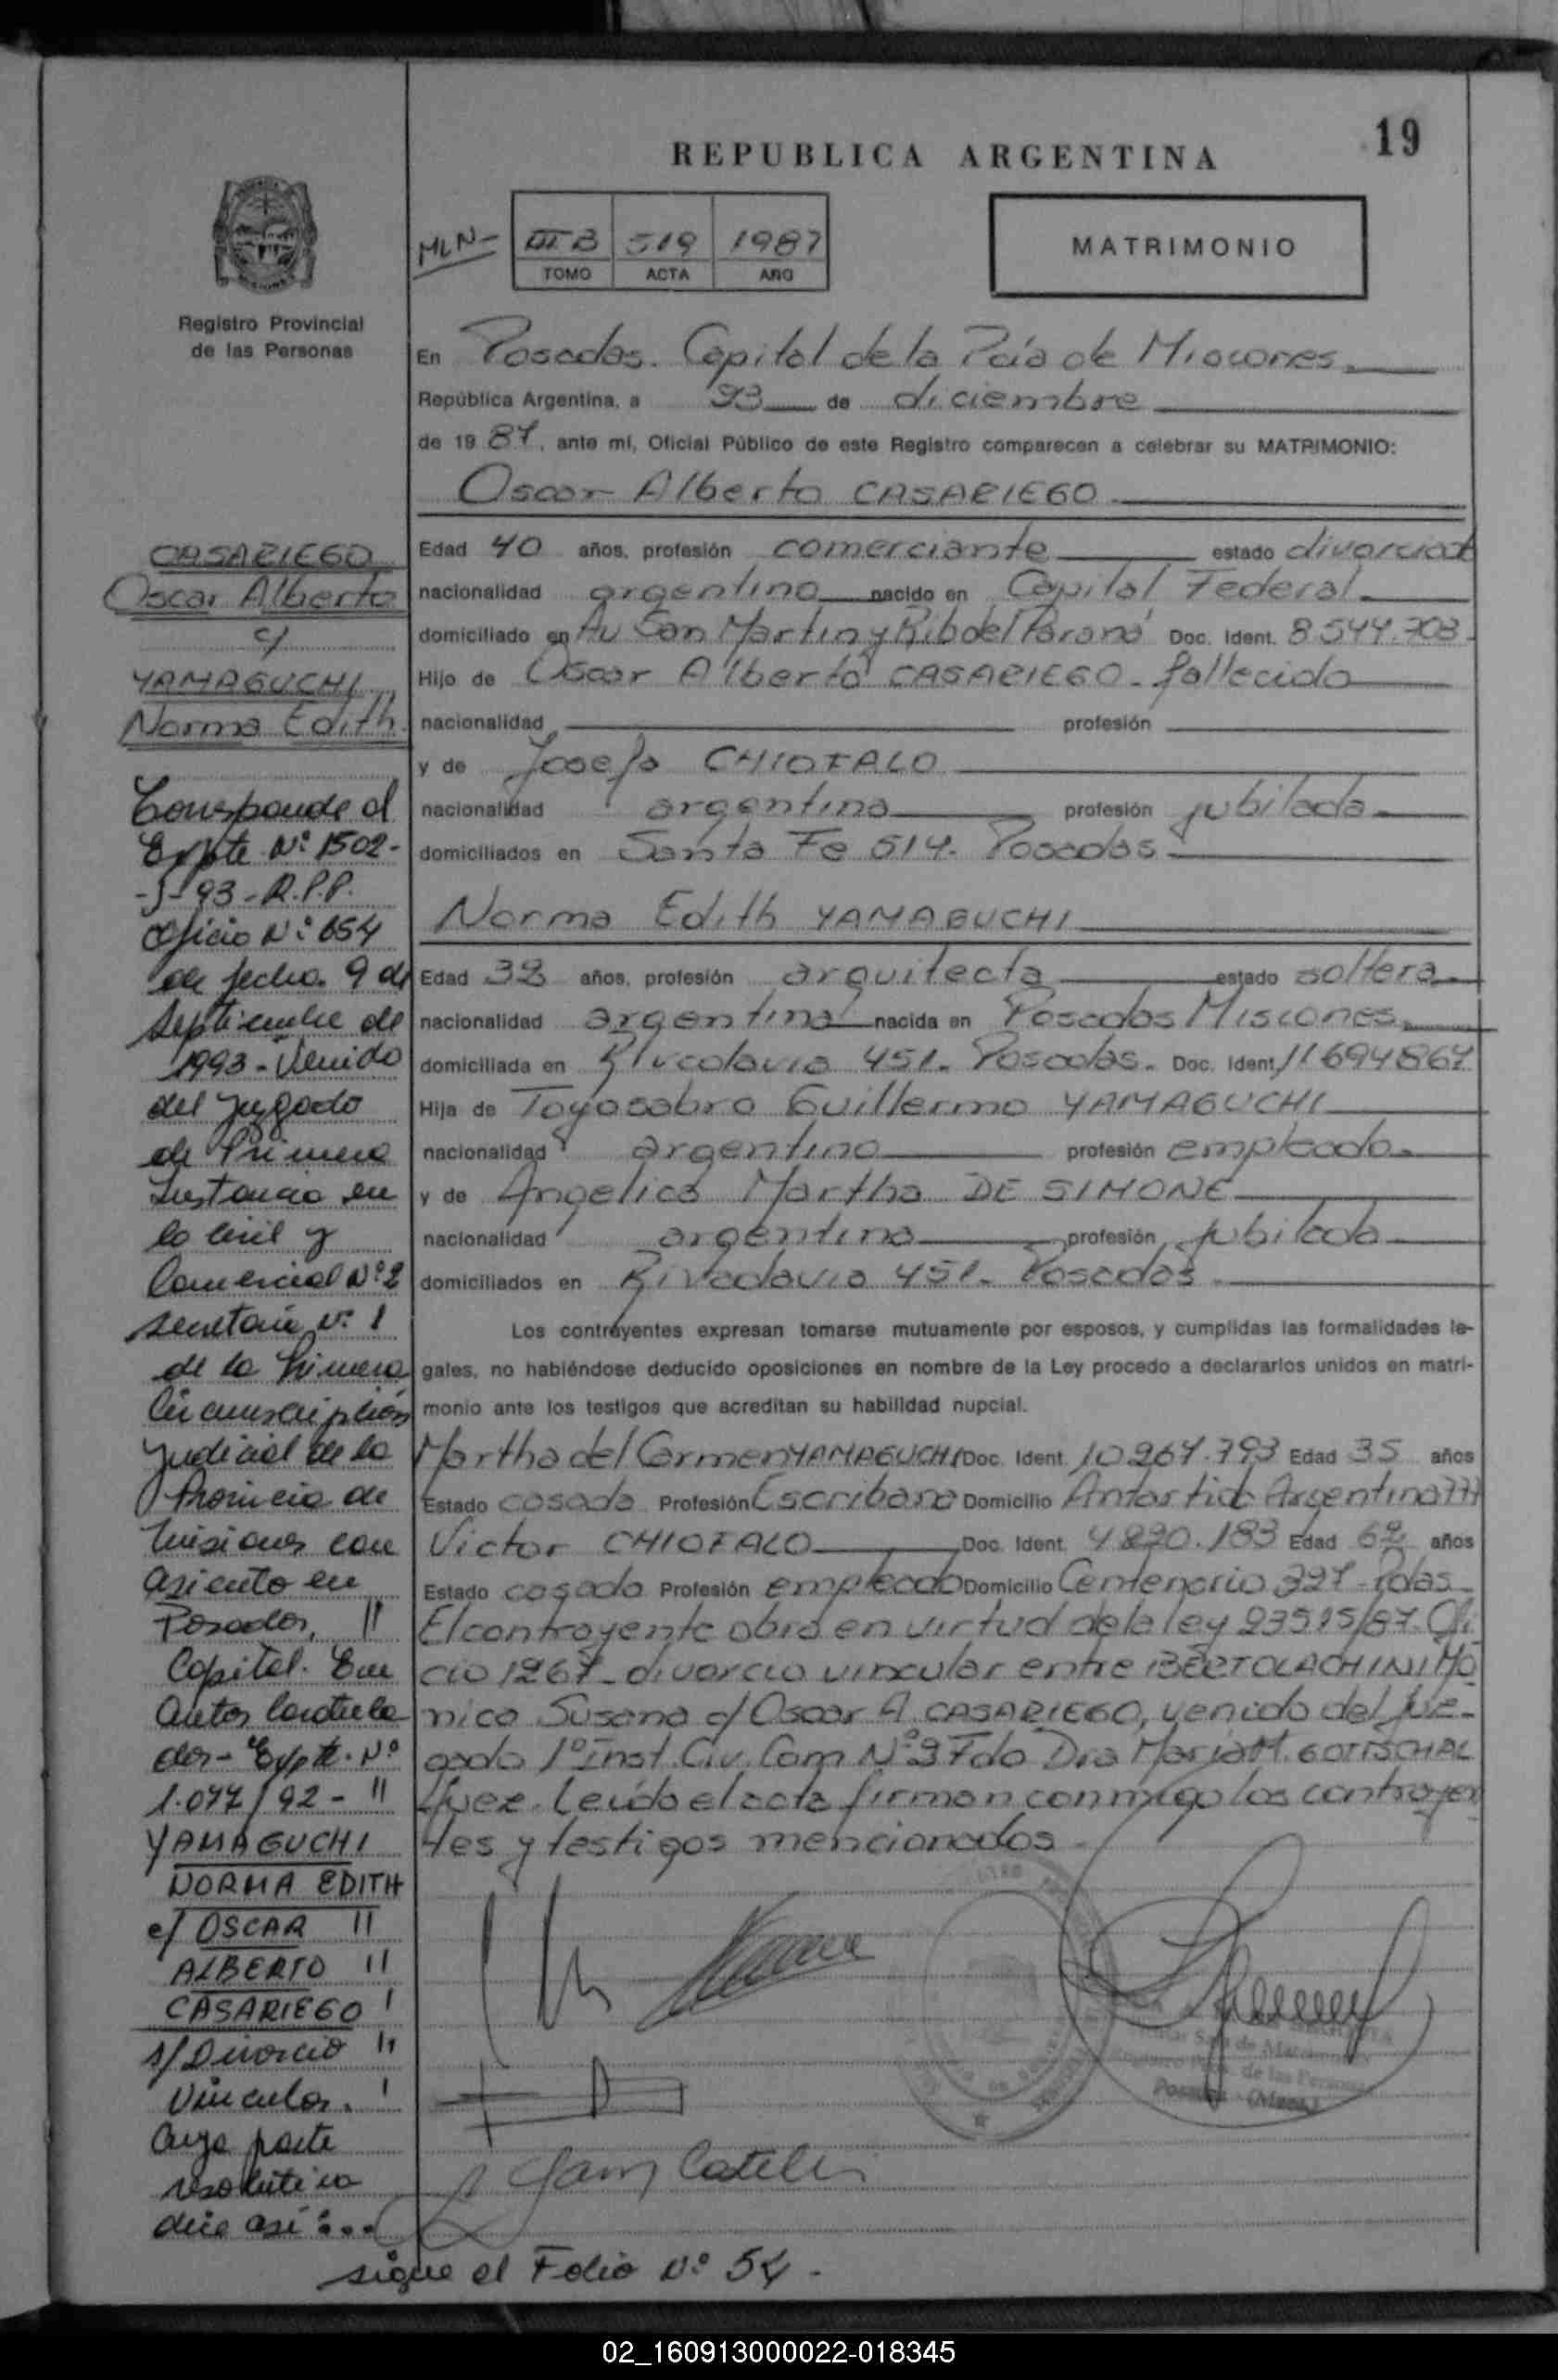 19
REPUBLICA ARGENTINA
MLN-
III B 519 1987
TOMO ACTA AÑO
MATRIMONIO
Registro Provincial
de las Personas
En Posadas. Capital de la Pcia de Misiones.
República Argentina, a 23 de diciembre
de 19 87, ante mí, Oficial Público de este Registro comparecen a celebrar su MATRIMONIO:
Oscar Alberto CASARIEGO
Edad 40 años, profesión comerciante estado divorciado
nacionalidad argentina nacido en Capital Federal.
domiciliado en Av San Martin y Rib del Paraná Doc. Ident. 8.544.703.
Hijo de Oscar Alberto CASARIEGO - fallecido
nacionalidad profesión
y de Josefa CHIOFALO
nacionalidad argentina profesión jubilada
domiciliados en Santa Fe 514. Posadas
Norma Edith YAMAGUCHI
Edad 32 años, profesión arquitecta estado soltera
nacionalidad argentina nacida en Posadas Misiones.
domiciliada en Rivadavia 451. Posadas. Doc. Ident. 11694867
Hija de Toyosabro Guillermo YAMAGUCHI
nacionalidad argentino profesión empleado.
y de Angelica Martha DE SIMONE
nacionalidad argentina profesión jubilada
domiciliados en Rivadavia 451. Posadas.
Los contrayentes expresan tomarse mutuamente por esposos, y cumplidas las formalidades le-
gales, no habiéndose deducido oposiciones en nombre de la Ley procedo a declararlos unidos en matri-
monio ante los testigos que acreditan su habilidad nupcial.
Martha del Carmen YAMAGUCHI Doc. Ident. 10.267.793 Edad 35 años
Estado casada Profesión Escribana Domicilio Antartida Argentina 777
Victor CHIOFALO Doc. Ident. 4.220.183 Edad 62 años
Estado casado Profesión empleado Domicilio Centenario 327 - Pdas
El contrayente obra en virtud de la ley 23515/87. Ofi
cio 1267 - divorcio vincular entre BERTOLACHINI Mó
nica Susana c/ Oscar A CASARIEGO, venido del Juz-
gado 1º Inst. Civ. Com. Nº 3 Fdo Dra Maria M. GOTTSCHAL
Juez. Leída el acta firman conmigo los contrayen
tes y testigos mencionados
CASARIEGO
Oscar Alberto
c/
YAMAGUCHI
Norma Edith
Corresponde al
Expte Nº 1502-
-J-93-R.P.P.
Oficio Nº 654
de fecha 9 de
Septiembre de
1993 - Venido
del Juzgado
de Primera
Instancia en
lo Civil y
Comercial Nº 2
Secretaria Nº 1
de la Primera
Circunscripción
Judicial de la
Provincia de
Misiones con
asiento en
Posadas, //
Capital. En
autos caratula
dos - Expte. Nº
1.077/92 - //
YAMAGUCHI
NORMA EDITH
c/ OSCAR //
ALBERTO //
CASARIEGO /
s/ Divorcio //
Vincular. /
Cuya parte
resolutiva
dice así:...
sigue el Folio Nº 54.
02_160913000022-018345